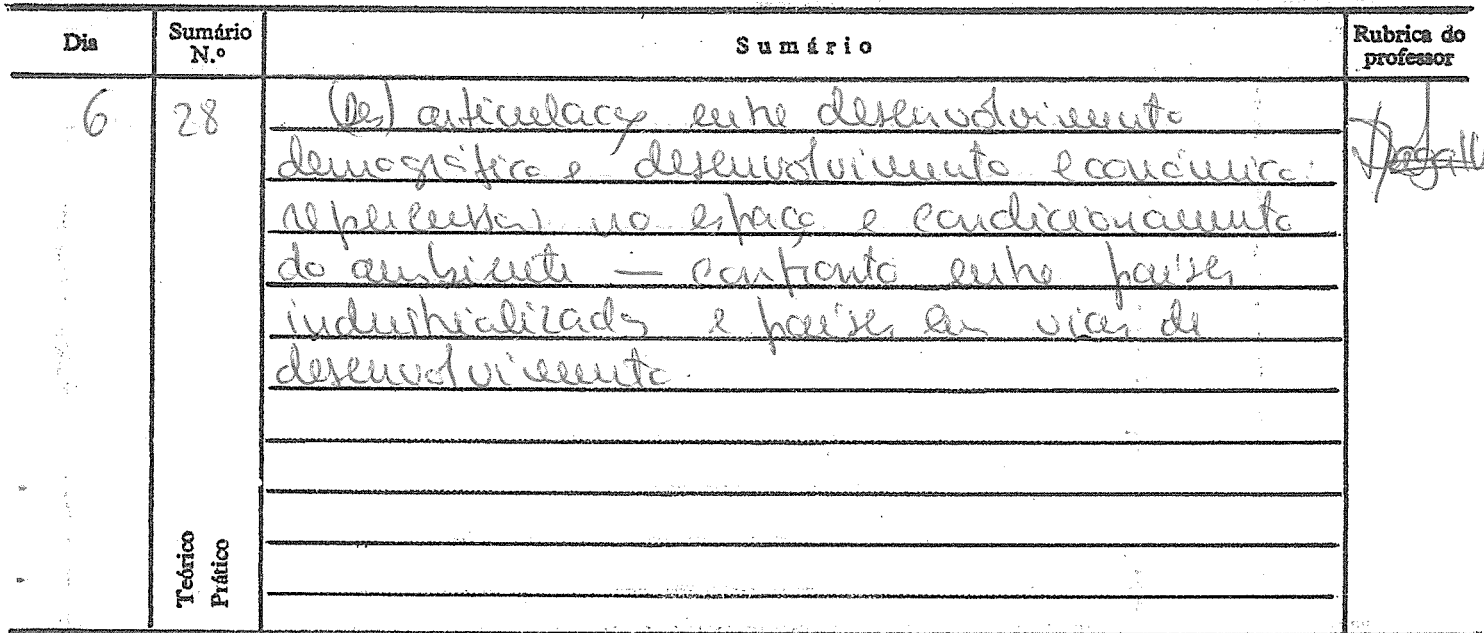 Dia Sumário N.º Sumário Rubrica do professor
6 28 (Des) articulação entre desenvolvimento
demográfico e desenvolvimento económico:
repercussões no espaço e condicionamento
do ambiente — confronto entre países
industrializados e países em vias de
desenvolvimento.
Teórico
Prático